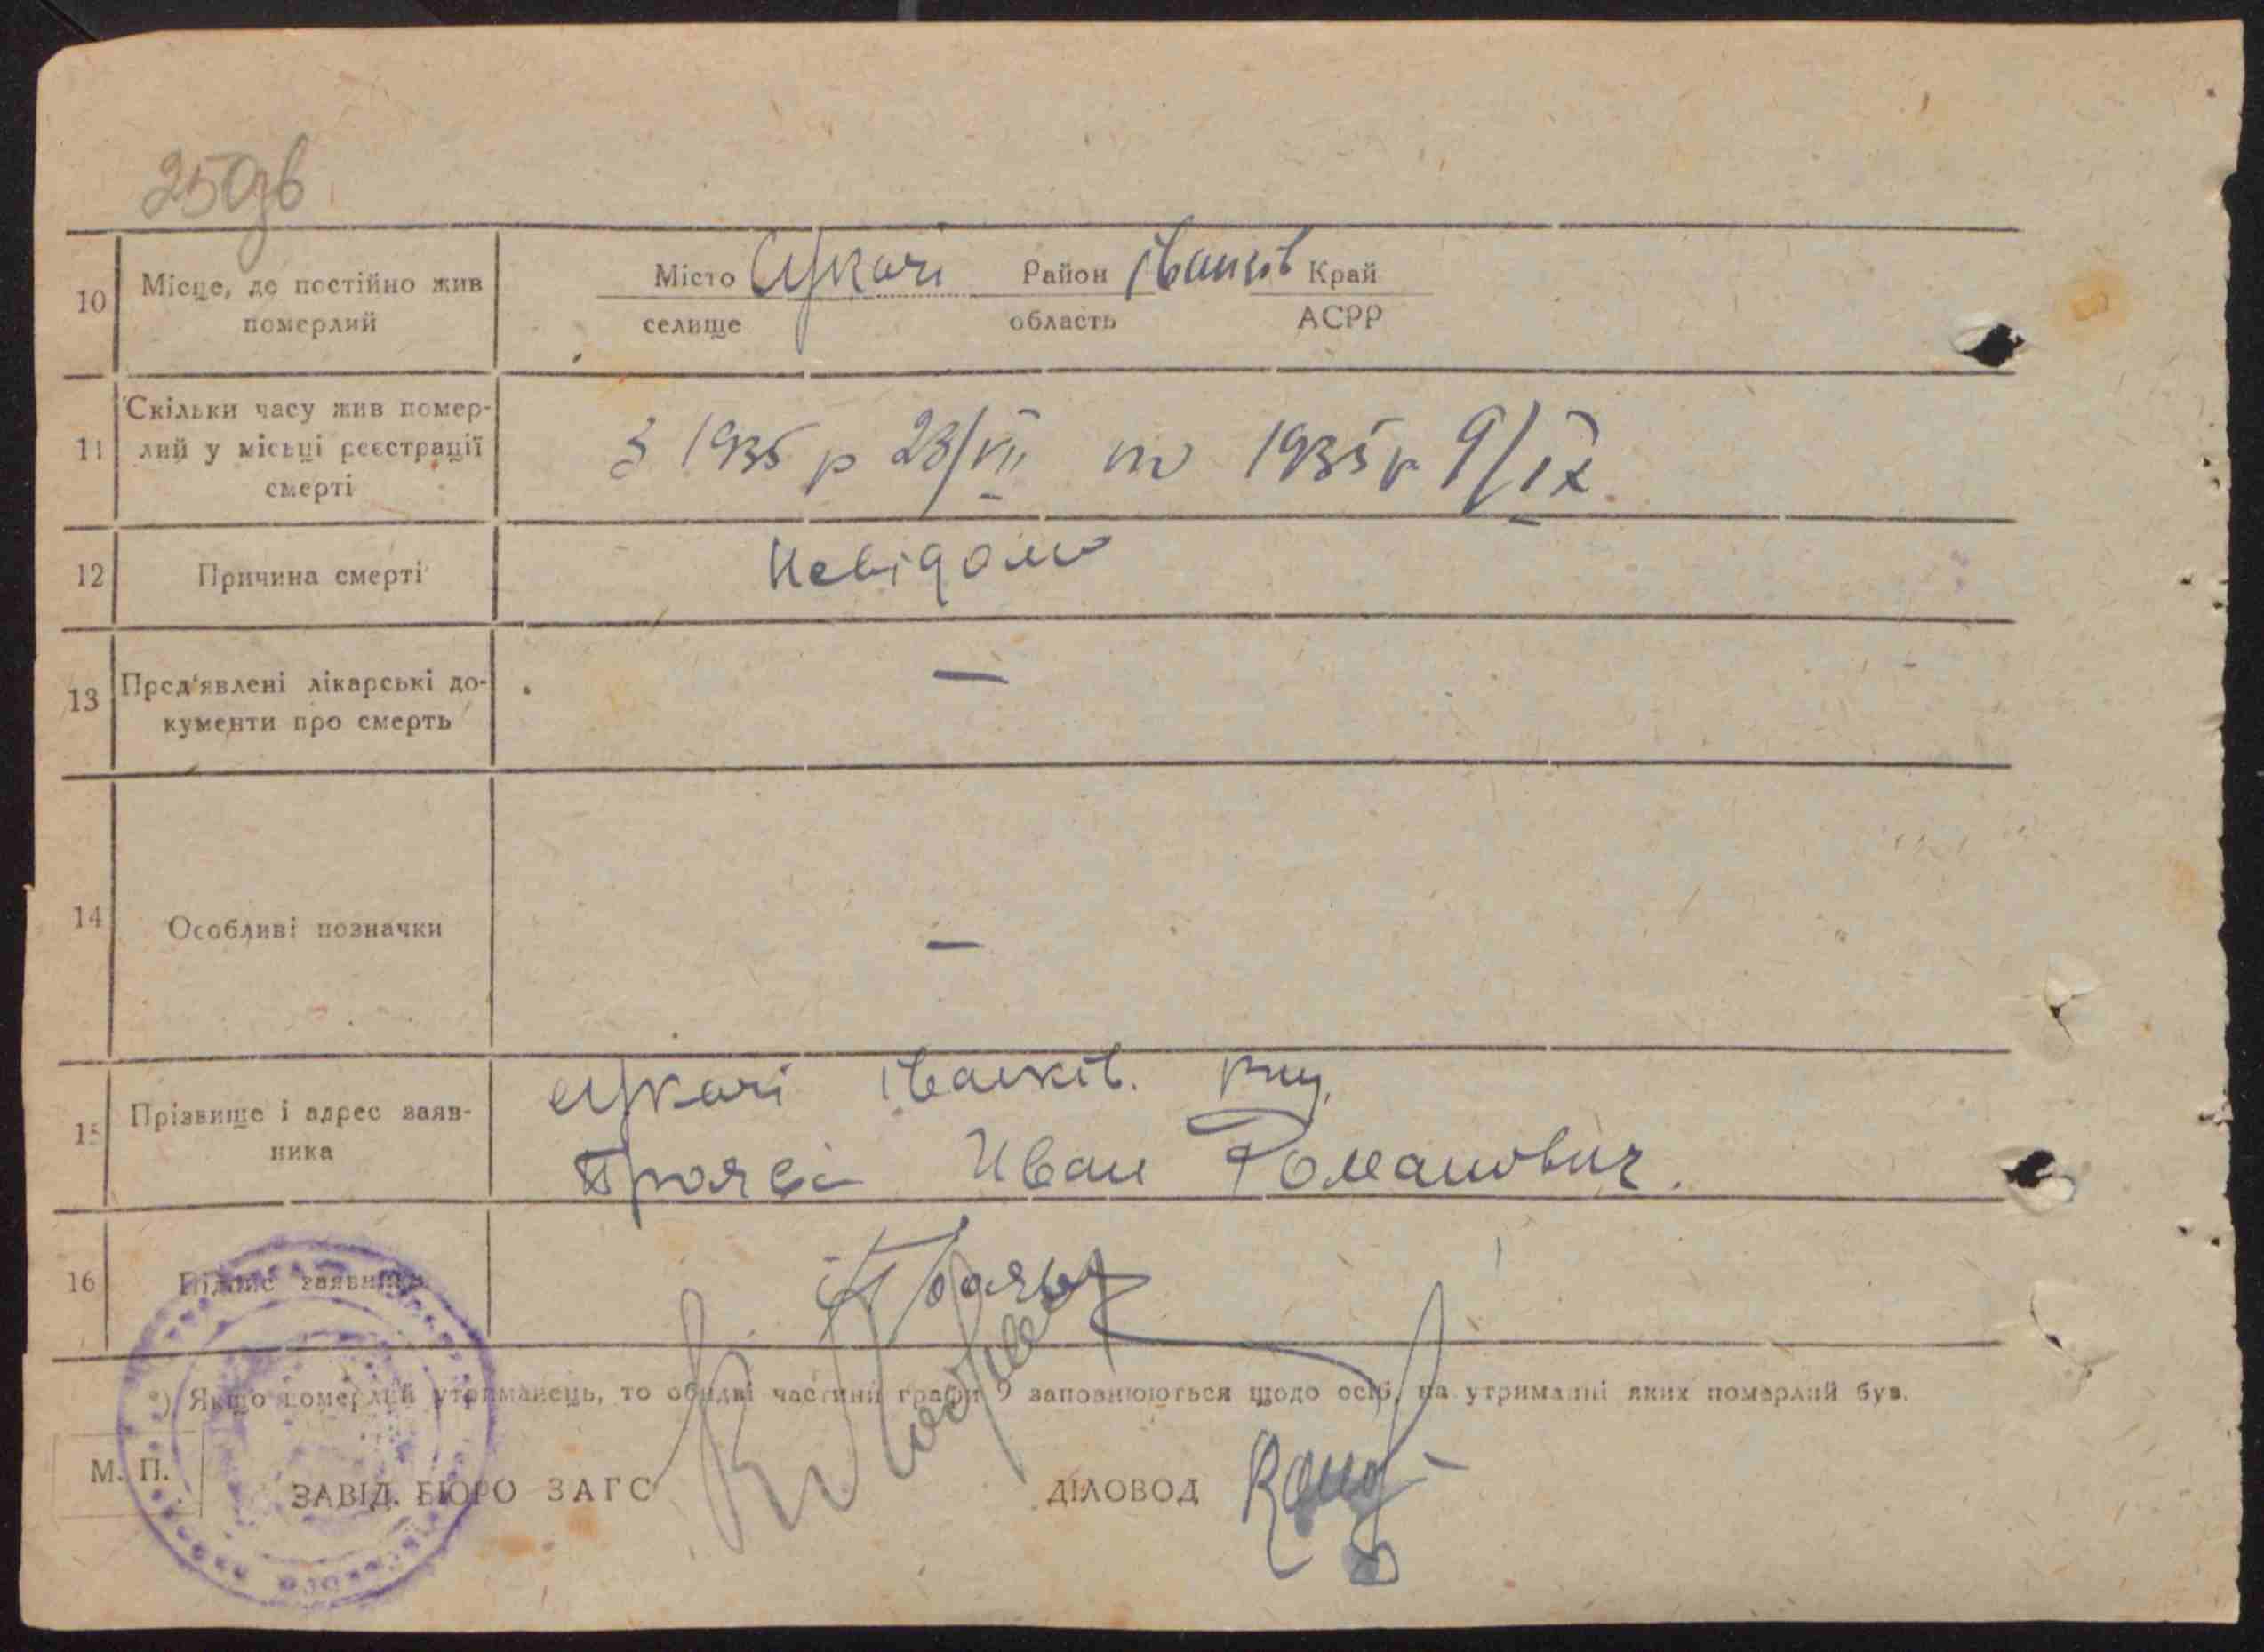 250зв
10 Місце, де постійно жив померлий
Місто Сукачі Район Іванків Край
селище область АСРР
11 Скільки часу жив помер-
лий у місьці реєстрації
смерті
З 1935 р 23/VII по 1935 р 9/IX
12 Причина смерті Невідомо
13 Пред'явлені лікарські до-
кументи про смерть —
14 Особливі позначки —
15 Прізвище і адрес заяв-
ника
Сукачі Іванків. рну.
Иван Романович.
16 Підпис заявника
*) Якщо померлий утриманець, то обидві частини графи 9 заповнюються щодо осіб, на утриманні яких померлий був.
М. П.
ЗАВІД. БЮРО ЗАГС ДІЛОВОД